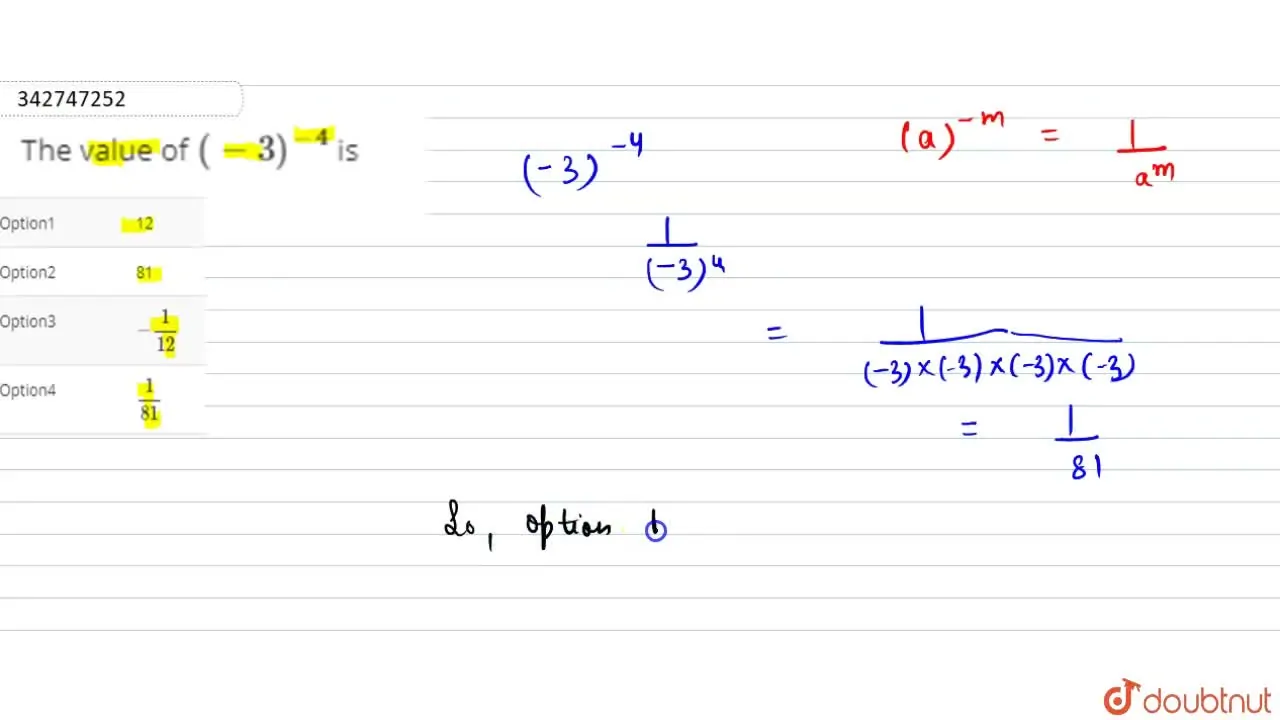 342747252
The value of (−3)^−4 is
Option1 12
Option2 81
Option3 −1/12
Option4 1/81
(-3)^-4
(a)^-m = 1/a^m
1/(-3)^4
= 1/(-3)×(-3)×(-3)×(-3)
= 1/81
So, option
doubtnut